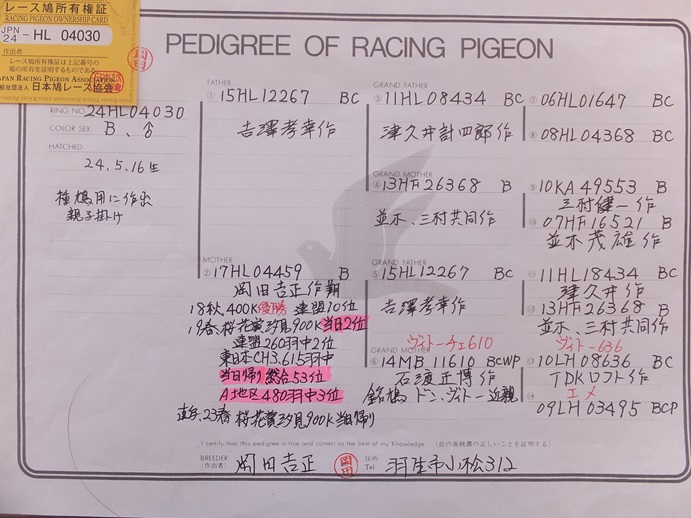 レース鳩所有権証
RACING PIGEON OWNERSHIP CARD
JPN
24 - HL 04030
作出者
岡田
レース鳩所有権証は上記番号の
鳩の所有を証明するものである。
JAPAN RACING PIGEON ASSOCIATION
一般社団法人 日本鳩レース協会
PEDIGREE OF RACING PIGEON
RING NO 24HL04030
COLOR SEX B、♂
HATCHED
24.5.16生
種鳩用に作出
親子掛け
FATHER
① 15HL12267 BC
吉澤孝幸作
MOTHER
② 17HL04459 B
岡田吉正作翔
18秋、400K優勝 連盟10位
19春、桜花賞汐見900K当日2位
連盟260羽中2位
東日本CH3.615羽中
当日帰り総合53位
A地区480羽中3位
23春 桜花賞汐見900K当日帰り
GRAND FATHER
③ 11HL08434 BC
津久井計四郎作
GRAND MOTHER
④ 13HF26368 B
並木、三村共同作
GRAND FATHER
⑤ 15HL12267 BC
吉澤孝幸作
ヴィトーチェ610
GRAND MOTHER
⑥ 14MB11610 BCWP
石渡正博作
銘鳩 ドン、ヴィトー近親
⑦ 06HL01647 BC
⑧ 08HL04368 BC
⑨ 10KA49553 B
三村健一作
⑩ 07HF16521 B
並木茂雄作
⑪ 11HL18434 BC
津久井作
⑫ 13HF26368 B
並木、三村共同作
ヴィトー636
⑬ 10LH08636 BC
TDKロフト作
エメ
⑭ 09LH03495 BCP
I certify that this pedigree is true and correct to the best of my Knowledge (此の血統書の正しいことを証明する)
BREEDER
(作出者)
岡田吉正
岡田
住所
Tel
羽生市小松312